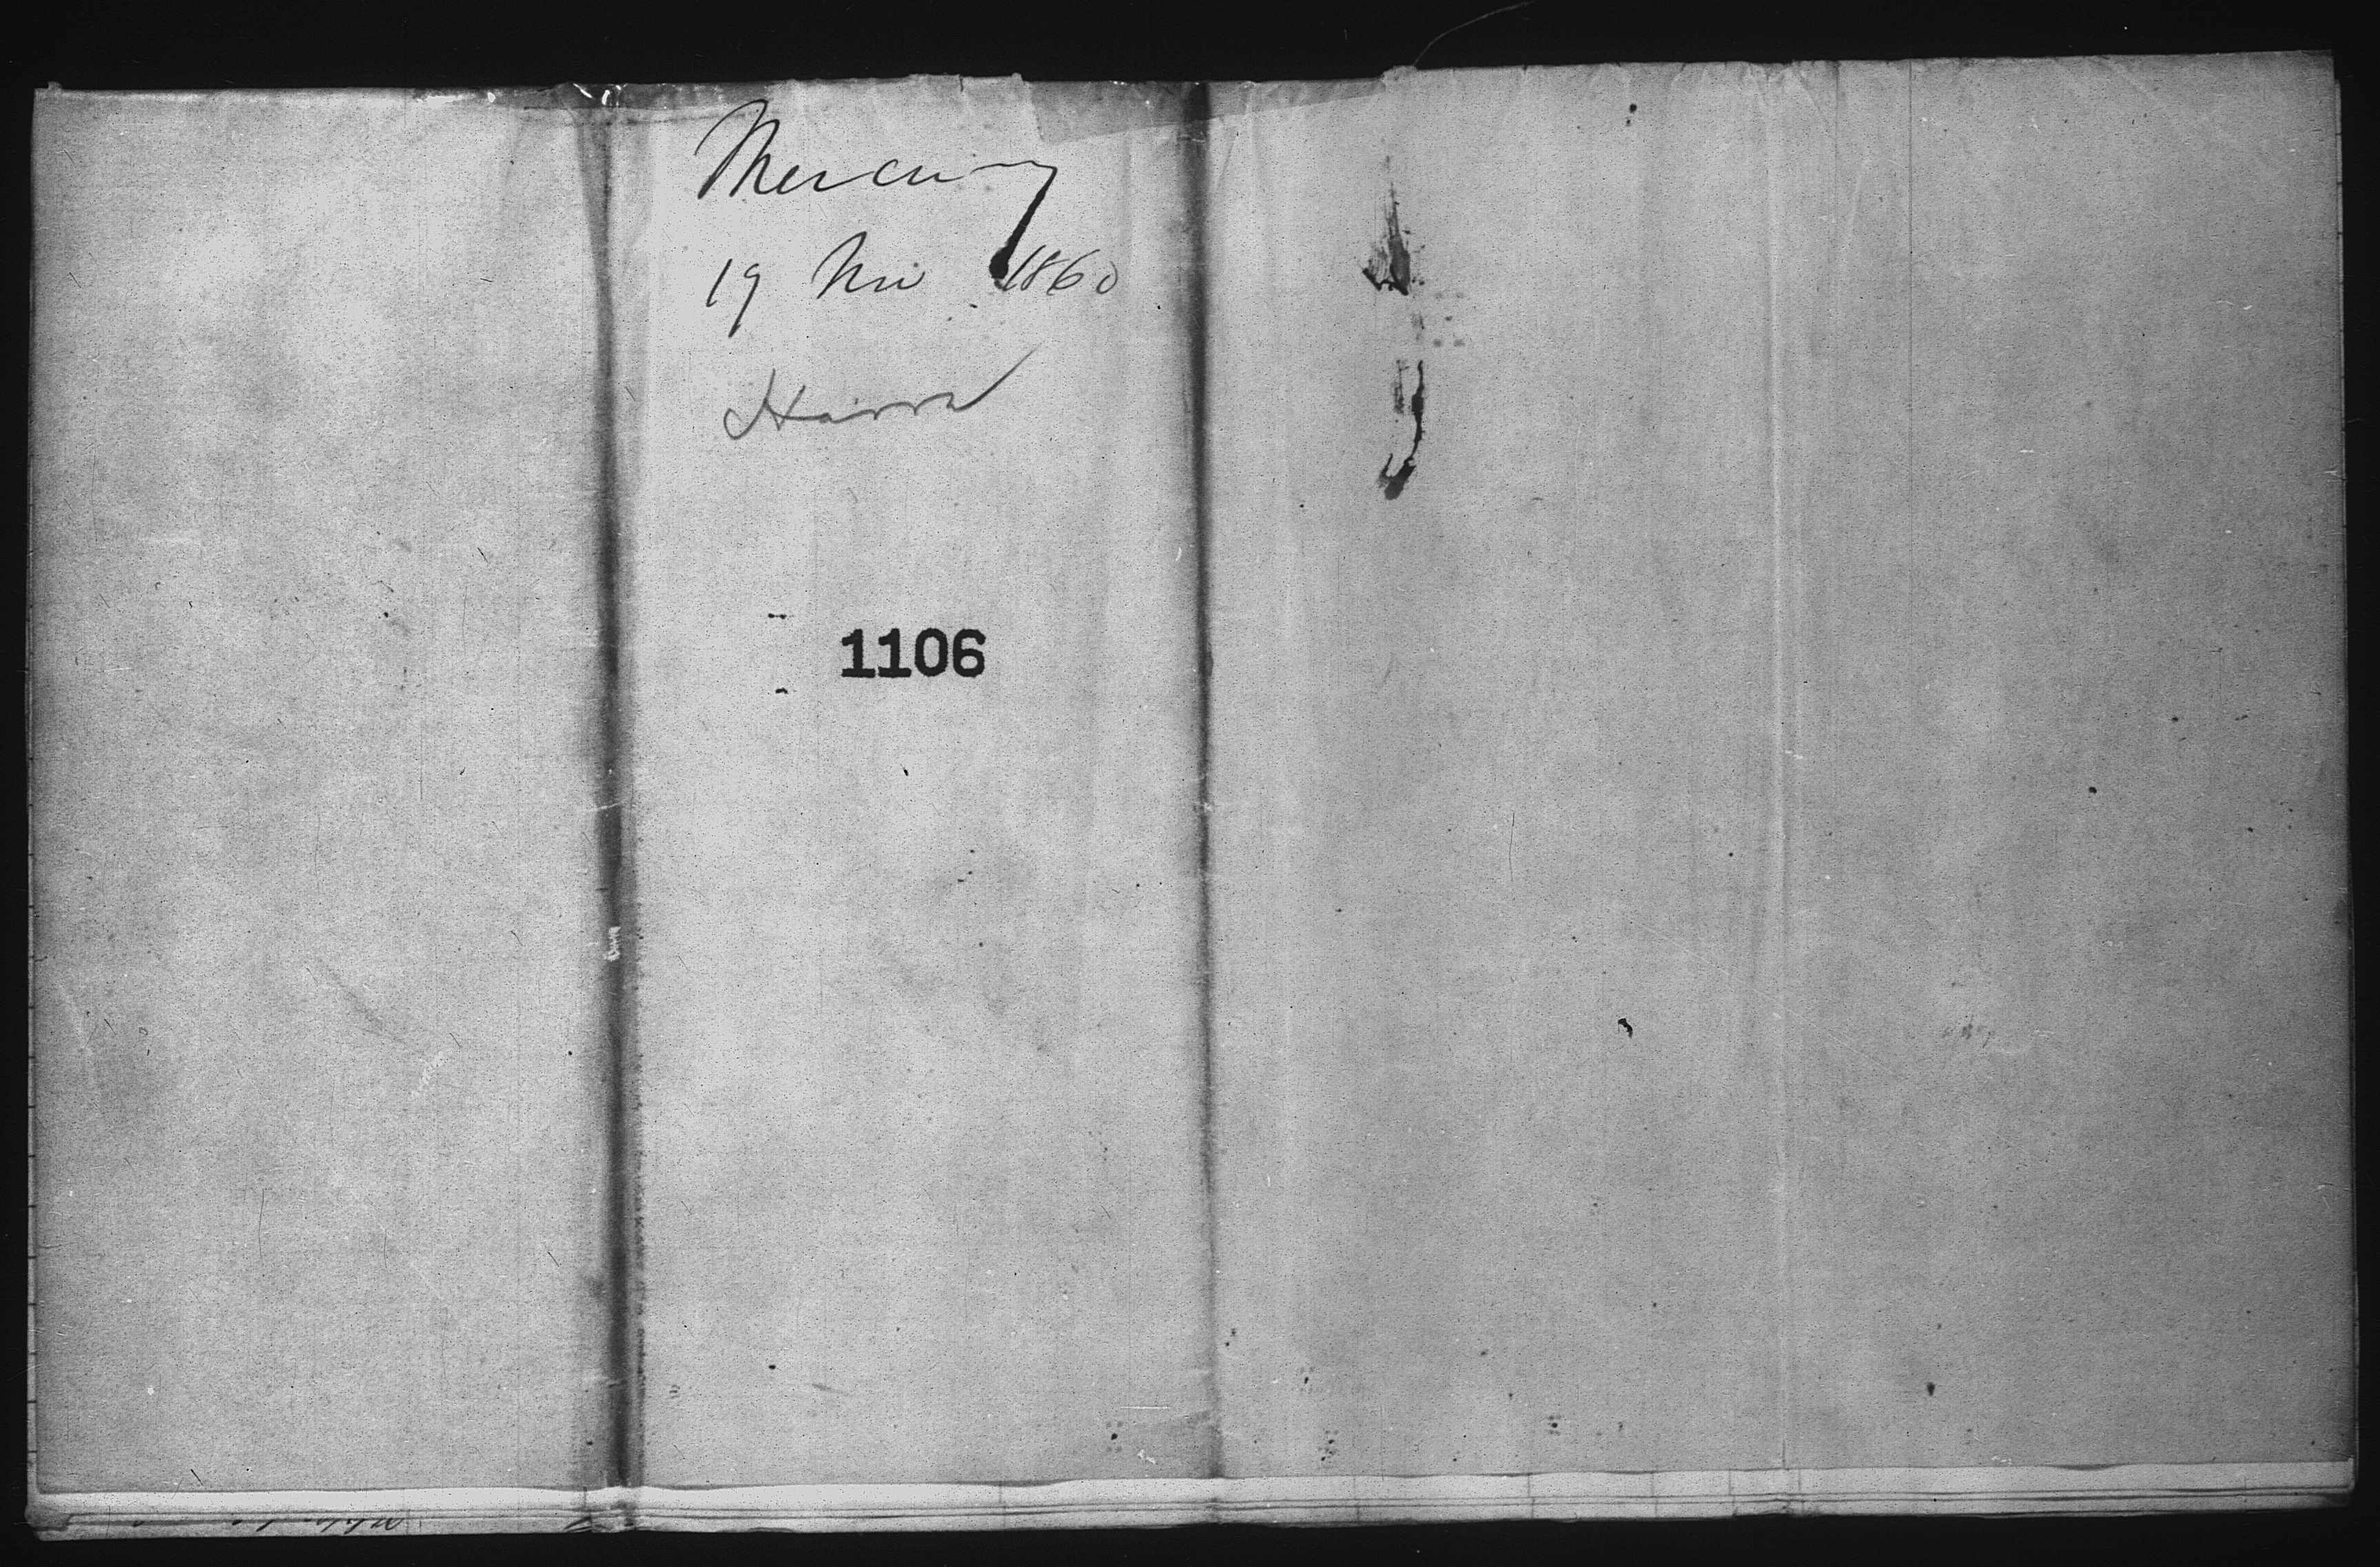 Mercury
19 Nov 1860
1106